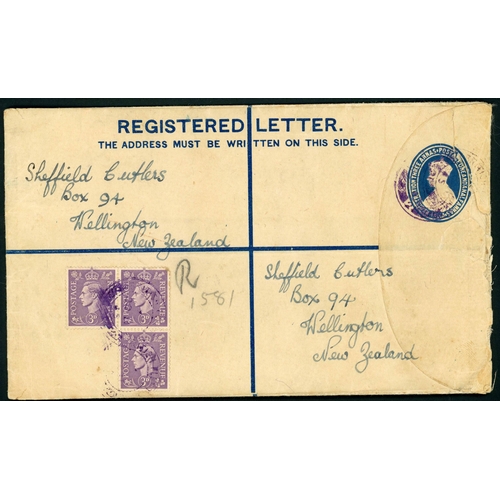 REGISTERED LETTER.
THE ADDRESS MUST BE WRITTEN ON THIS SIDE.
Sheffield Cutlers
Box 94
Wellington
New Zealand
R
1581
Sheffield Cutlers
Box 94
Wellington
New Zealand
POSTAGE 3D REVENUE
POSTAGE 3D REVENUE
POSTAGE 3D REVENUE